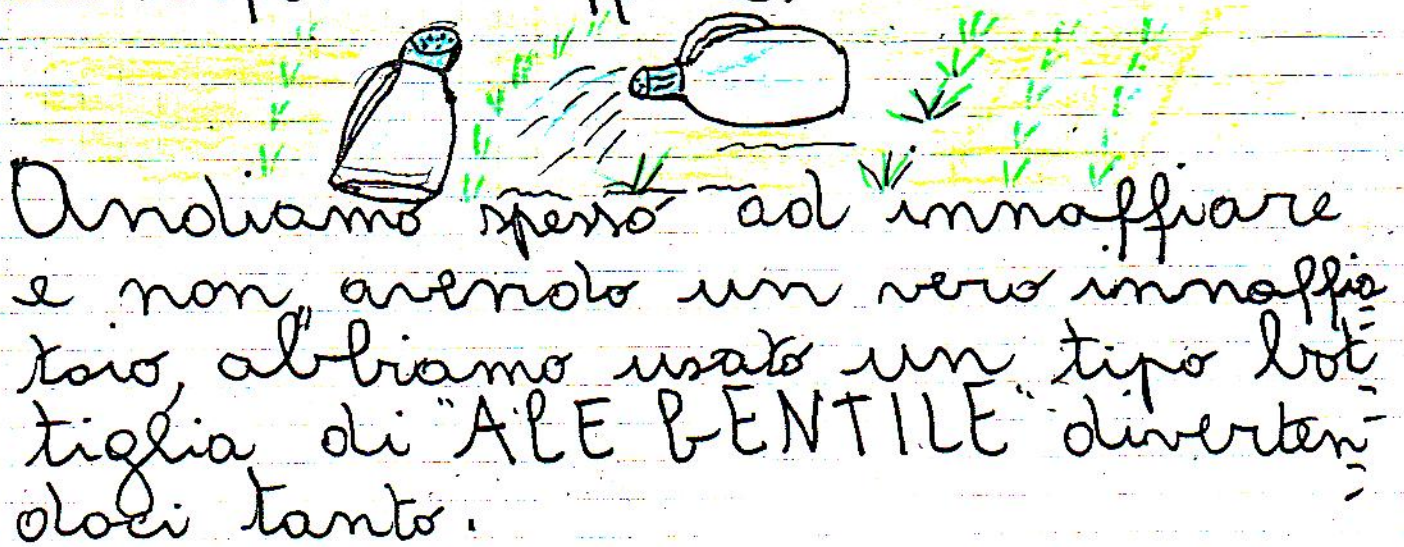 Andiamo spesso ad innaffiare
e non avendo un vero innaffia=
toio, abbiamo usato un tipo bot=
tiglia di "ALE GENTILE" diverten=
doci tanto.